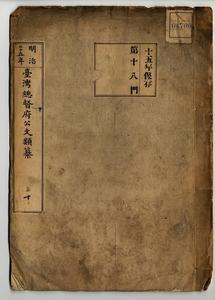 十五年保存
第十八門
明治
三十五年
臺灣總督府公文類纂